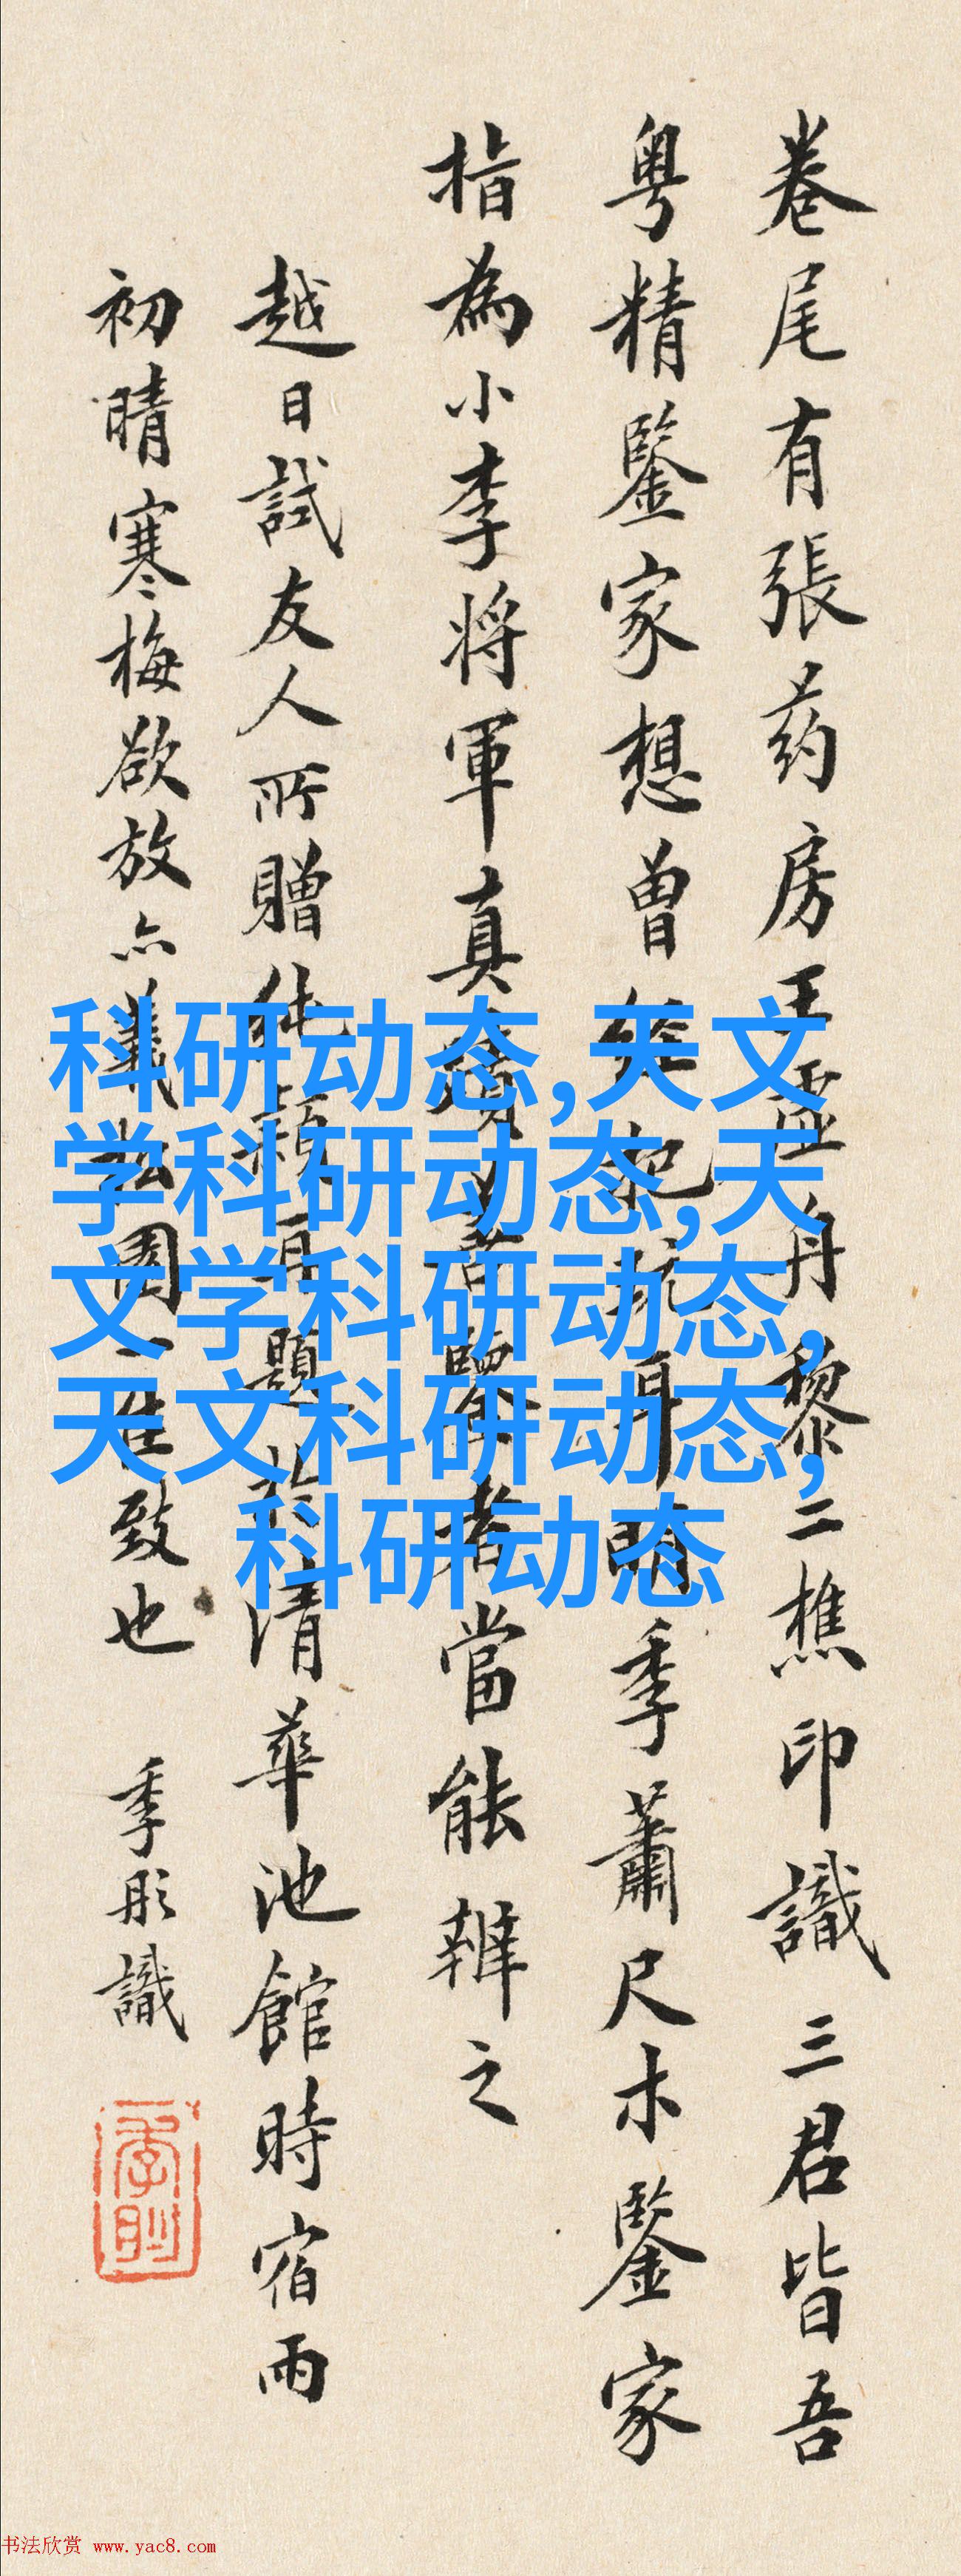 卷尾有張药房王虛舟黎二樵印識三君皆吾
粤精鑒家想曾耳季蕭尺木鑒家
指為小李將軍真者當能辨之
越日試友人所贈題清華池館時宿雨
初晴寒梅欲放亦致也 季彤識
科研动态,天文
学科研动态,天
文学科研动态,
天文科研动态,
科研动态
书法欣赏 www.yac8.com